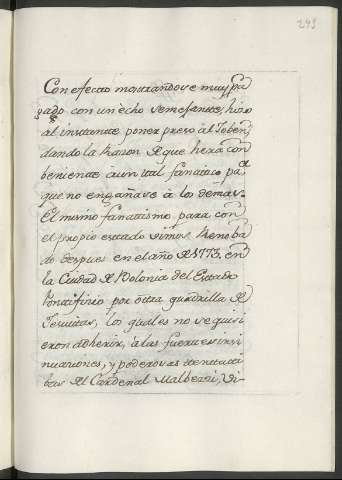 243
Con efecto mostrandose muy pa
gado con un echo semejante, hizo
al instante poner preso àl Joben,
dando la Razon de que hera con
beniente a un tal fanatico pa.ª
que no engañase à los demas.
El mismo fanatismo para con
el propio estado vimos Renoba
do despues en el año de 1773. en
la Ciudad de Bolonia del Estado
Pontificio por òtra quadrilla de
Jesuitas, los quales no se quisi
eron adherir, à las fuertes insi
nuaciones, y poderosas tentati
bas del Cardenal Malbezzi, Vi-